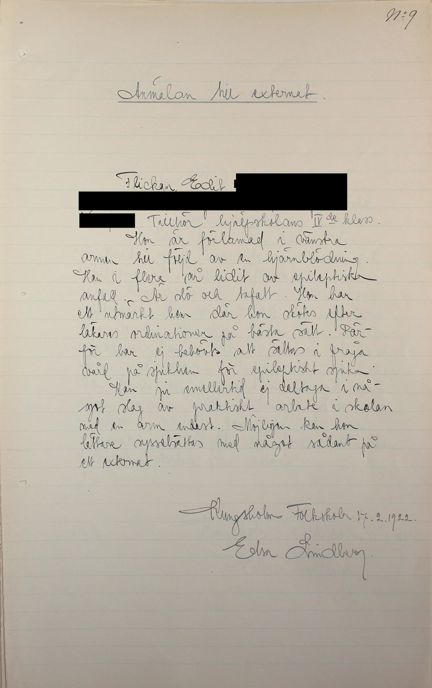 No 9
Anmälan till externat.
Flickan Edit
Tillhör hjälpskolans IV de klass.
Hon är förlamad i vänstra
armen till följd av en hjärnblödning.
Har i flera år lidit av epileptiska
anfall. Är slö och tafatt. Hon har
ett utmärkt hem där hon skötes efter
läkares ordinationer på bästa sätt. Där-
för har ej behövts att sättas i fråga
vård på sjukhem för epileptiskt sjuka.
Kan ju emellertid ej deltaga i nå-
got slag av praktiskt arbete i skolan
med en arm endast. Möjligen kan hon
lättare sysselsättas med något sådant på
ett externat.
Kungsholms Folkskola 17.2.1922.
Edsa Lindberg.